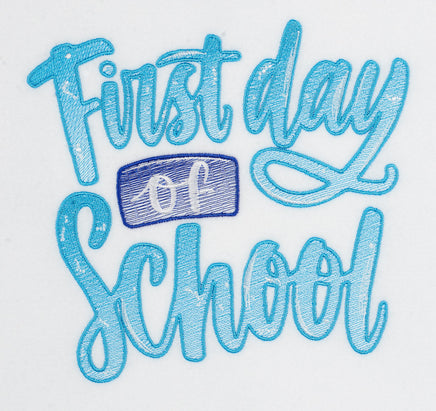 First day
of
School